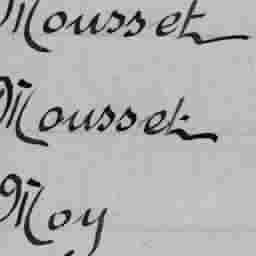 Mousset
Mousset
Moy